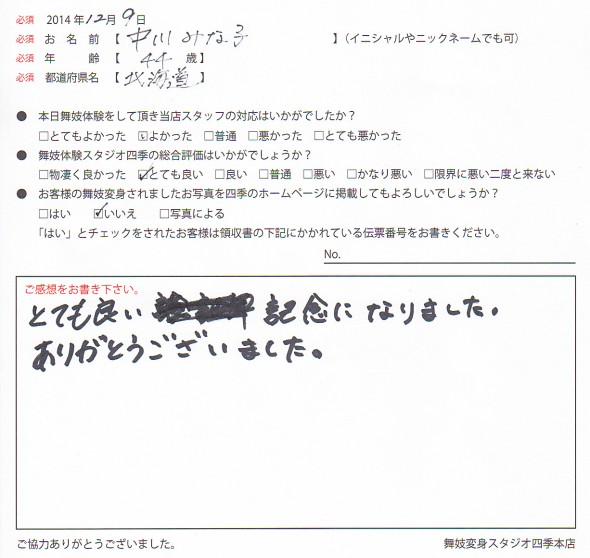 必須 2014年12月9日
必須 お名前【 中川 みな子 】(イニシャルやニックネームでも可)
必須 年齢【 44 歳】
必須 都道府県名【 北海道 】
● 本日舞妓体験をして頂き当店スタッフの対応はいかがでしたか?
□とてもよかった ☑よかった □普通 □悪かった □とても悪かった
● 舞妓体験スタジオ四季の総合評価はいかがでしょうか?
□物凄く良かった ☑とても良い □良い □普通 □悪い □かなり悪い □限界に悪い二度と来ない
● お客様の舞妓変身されましたお写真を四季のホームページに掲載してもよろしいでしょうか?
□はい ☑いいえ □写真による
「はい」とチェックをされたお客様は領収書の下記にかかれている伝票番号をお書きください。
No.
ご感想をお書き下さい。
とても良い 記念に なりました.
ありがとうございました。
ご協力ありがとうございました。 舞妓変身スタジオ四季本店